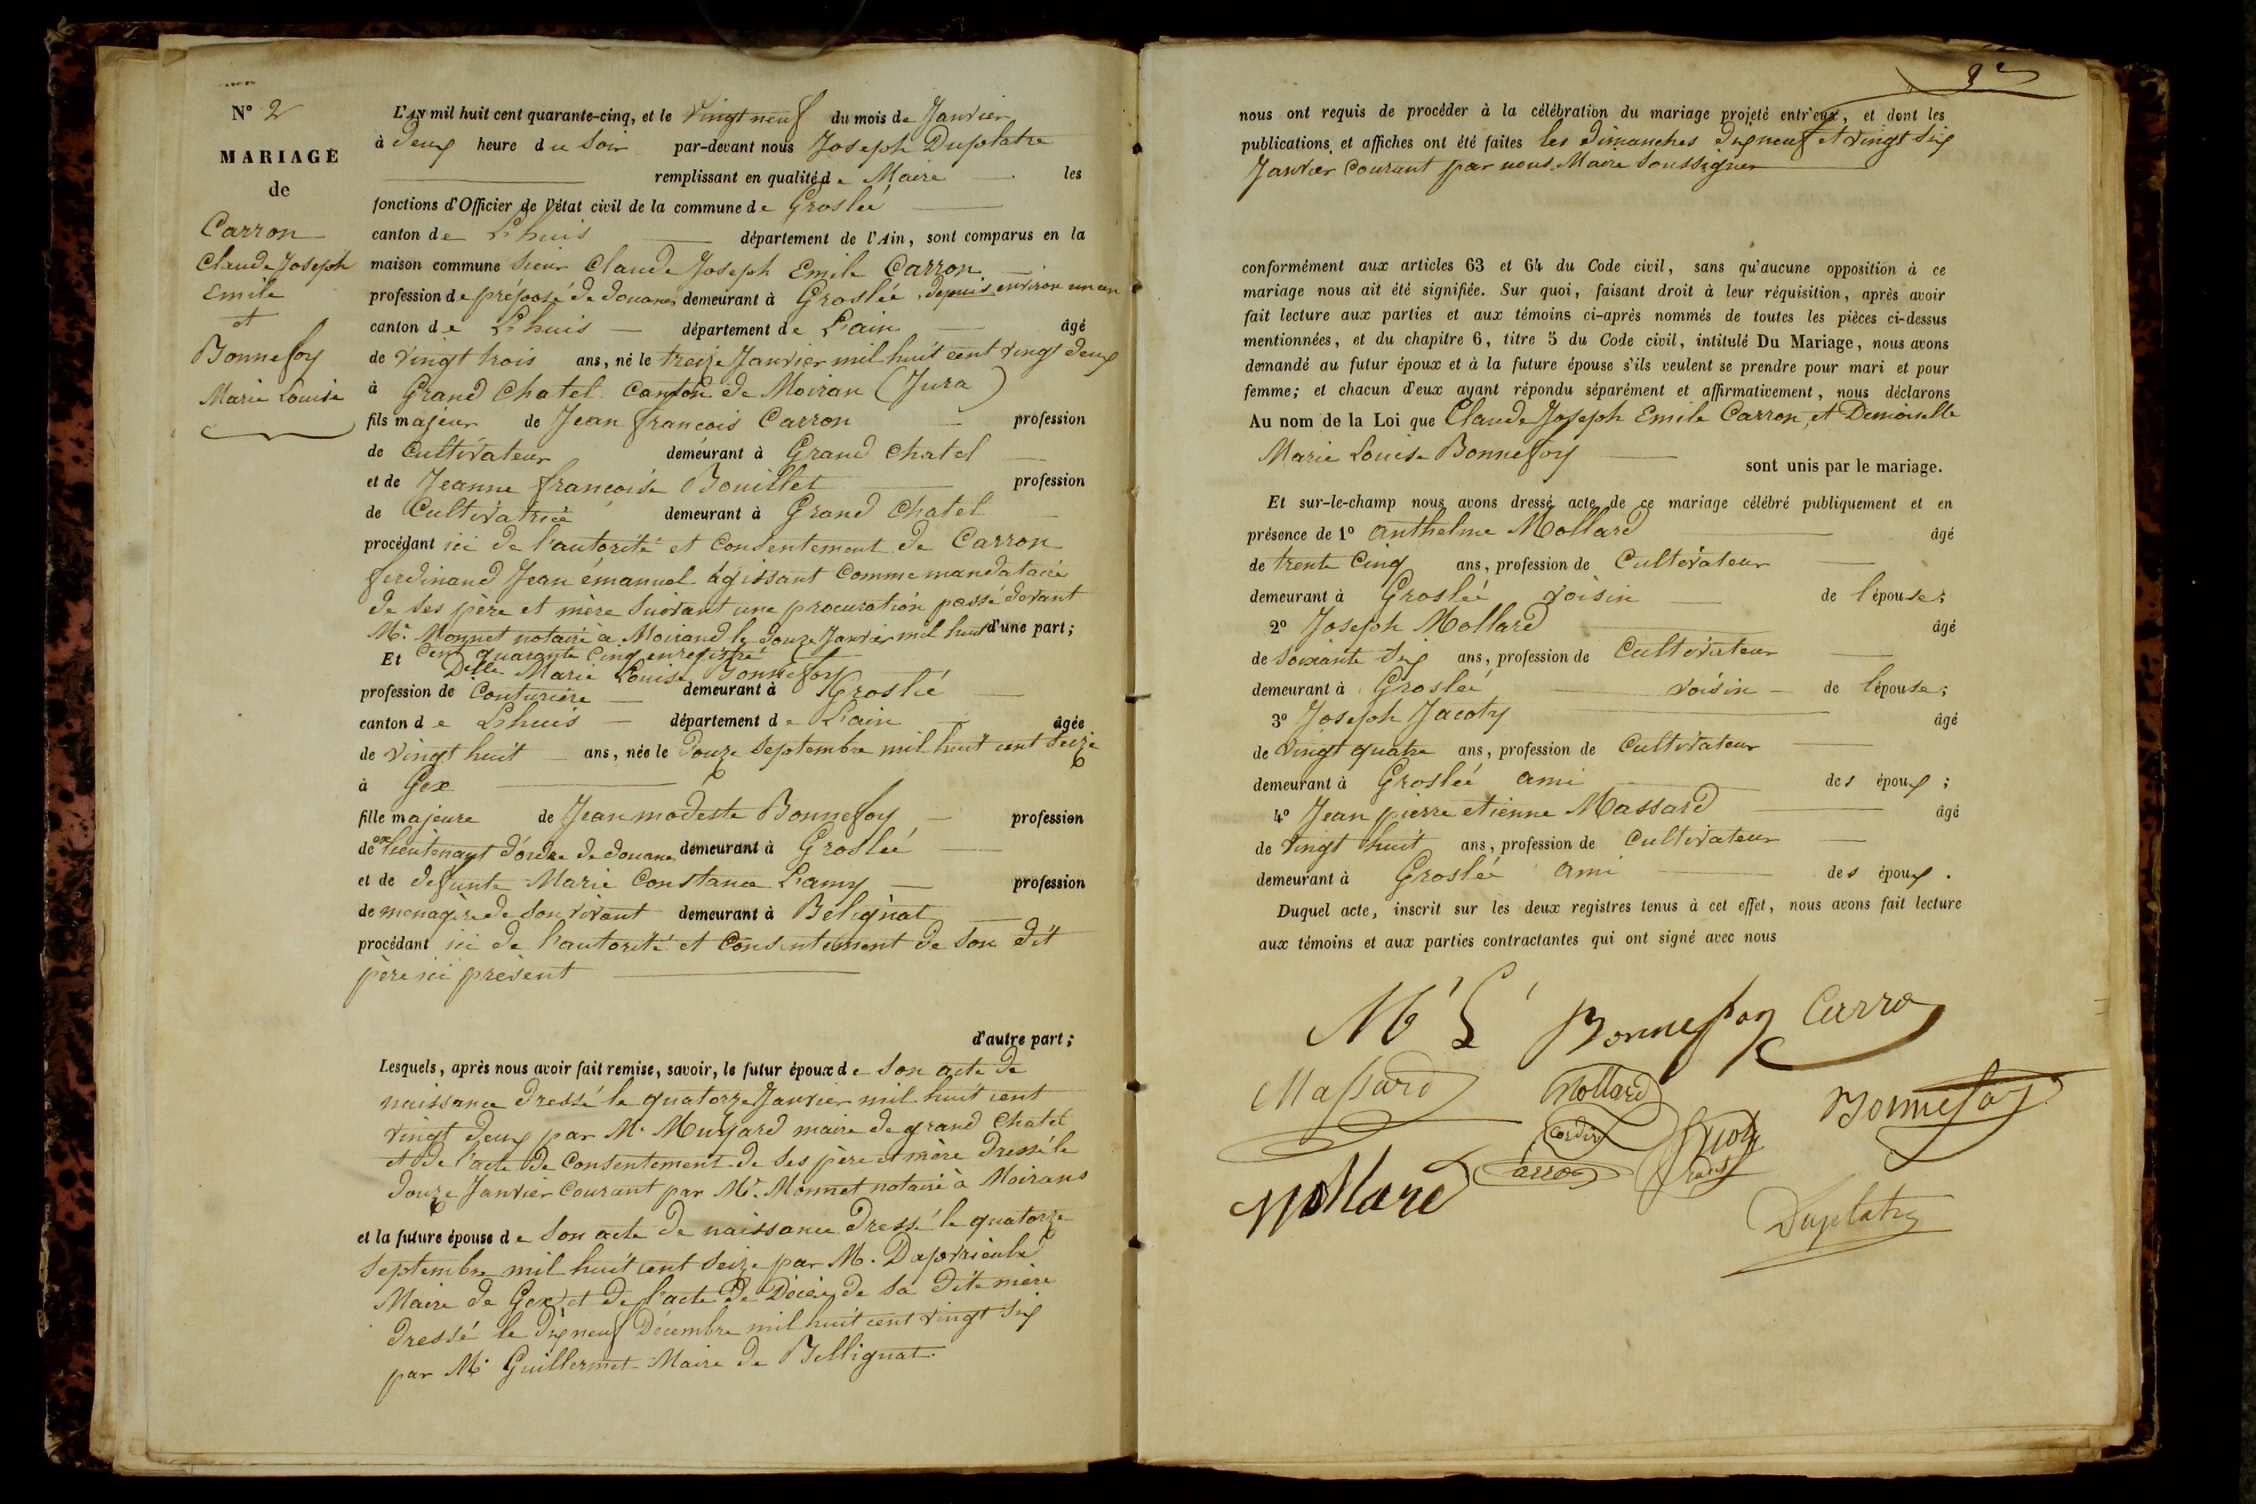 N° 2
MARIAGE
de
Carron
Claude Joseph
Emile
et
Bonnefoy
Marie Louise
L'AN mil huit cent quarante-cinq, et le vingt neuf du mois de Janvier
à deux heure du soir par-devant nous Joseph Duplatre
remplissant en qualité de Maire les
fonctions d'Officier de l'état civil de la commune de Groslée
canton de Lhuis département de l'Ain, sont comparus en la
maison commune sieur Claude Joseph Emile Carron
profession de préposé de douanes demeurant à Groslée depuis environ un an
canton de Lhuis département de L'ain âgé
de vingt trois ans, né le treize Janvier mil huit cent vingt deux
à Grand Chatel canton de Moiran (Jura)
fils majeur de Jean françois Carron profession
de Cultivateur demeurant à Grand Chatel
et de Jeanne françoise Bouillet profession
de Cultivatrice demeurant à Grand Chatel
procédant ici de l'autorité et consentement de Carron
ferdinand Jean émanuel agissant comme mandataire
de ses père et mère suivant une procuration passé devant
Mr. Monnet notaire à Moirand le douze Janvier mil huit d'une part;
cent quarante cinq enregistré
Et Delle Marie Louise Bonnefoy
profession de Couturière demeurant à Groslée
canton de Lhuis département de L'ain âgée
de vingt huit ans, née le douze septembre mil huit cent seize
à Gex
fille majeure de Jean modeste Bonnefoy profession
de ex lieutenant d'ordre de douanes demeurant à Groslée
et de defunte Marie Constance Lamy profession
de menagère de son vivant demeurant à Belignat
procédant ici de l'autorité et consentement de son dit
père ici présent
d'autre part;
Lesquels, après nous avoir fait remise, savoir, le futur époux de son acte de
naissance dressé le quatorze Janvier mil huit cent
vingt deux par Mr. Muyard maire de grand Chatel
et de l'acte de consentement de ses père et mère dressé le
douze Janvier courant par Mr. Monnet notaire à Moirans
et la future épouse de son acte de naissance dressé le quatorze
septembre mil huit cent seize par M.
Maire de Gex et de l'acte de Décès de sa dite mère
dressé le dix neuf Décembre mil huit cent vingt six
par Mr Guillermet Maire de Bellignat
nous ont requis de procéder à la célébration du mariage projeté entr'eux, et dont les
publications et affiches ont été faites les dimanches dix neuf et vingt six
Janvier courant par nous Maire soussigner
conformément aux articles 63 et 64 du Code civil, sans qu'aucune opposition à ce
mariage nous ait été signifiée. Sur quoi, faisant droit à leur réquisition, après avoir
fait lecture aux parties et aux témoins ci-après nommés de toutes les pièces ci-dessus
mentionnées, et du chapitre 6, titre 5 du Code civil, intitulé Du Mariage, nous avons
demandé au futur époux et à la future épouse s'ils veulent se prendre pour mari et pour
femme; et chacun d'eux ayant répondu séparément et affirmativement, nous déclarons
Au nom de la Loi que Claude Joseph Emile Carron, et Demoiselle
Marie Louise Bonnefoy
sont unis par le mariage.
Et sur-le-champ nous avons dressé acte de ce mariage célébré publiquement et en
présence de 1° Anthelme Mollard âgé
de trente cinq ans, profession de Cultivateur
demeurant à Groslée voisin de l'épouse;
2° Joseph Mollard âgé
de soixante dix ans, profession de Cultivateur
demeurant à Groslée voisin de l'épouse;
3° Joseph Jacoty âgé
de vingt quatre ans, profession de Cultivateur
demeurant à Groslée ami des époux;
4° Jean pierre etienne Massard âgé
de vingt huit ans, profession de Cultivateur
demeurant à Groslée ami des époux.
Duquel acte, inscrit sur les deux registres tenus à cet effet, nous avons fait lecture
aux témoins et aux parties contractantes qui ont signé avec nous
M L Bonnefoy Carron
Massard Mollard Bonnefoy
Mollard Carron
Duplatre